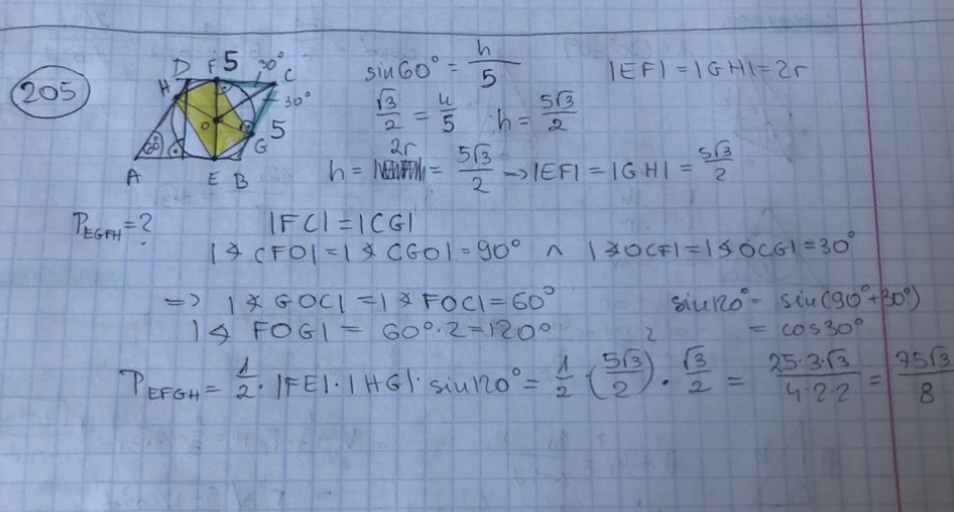 205
D F 5 30° C
H 30°
O 5
60° G
A E B
sin60° = h/5
|EF| = |GH| = 2r
√3/2 = h/5 h = 5√3/2
h = 2r = 5√3/2 → |EF| = |GH| = 5√3/2
P_EGFH = ? |FC| = |CG|
|∡ CFO| = |∡ CGO| = 90° ∧ |∡OCF| = |∡OCG| = 30°
=> |∡ GOC| = |∡ FOC| = 60° sin120° = sin(90°+30°)
|∡ FOG| = 60°·2 = 120° = cos30°
P_EFGH = 1/2 · |FE| · |HG| · sin120° = 1/2 (5√3/2)² · √3/2 = 25·3·√3/4·2·2 = 75√3/8